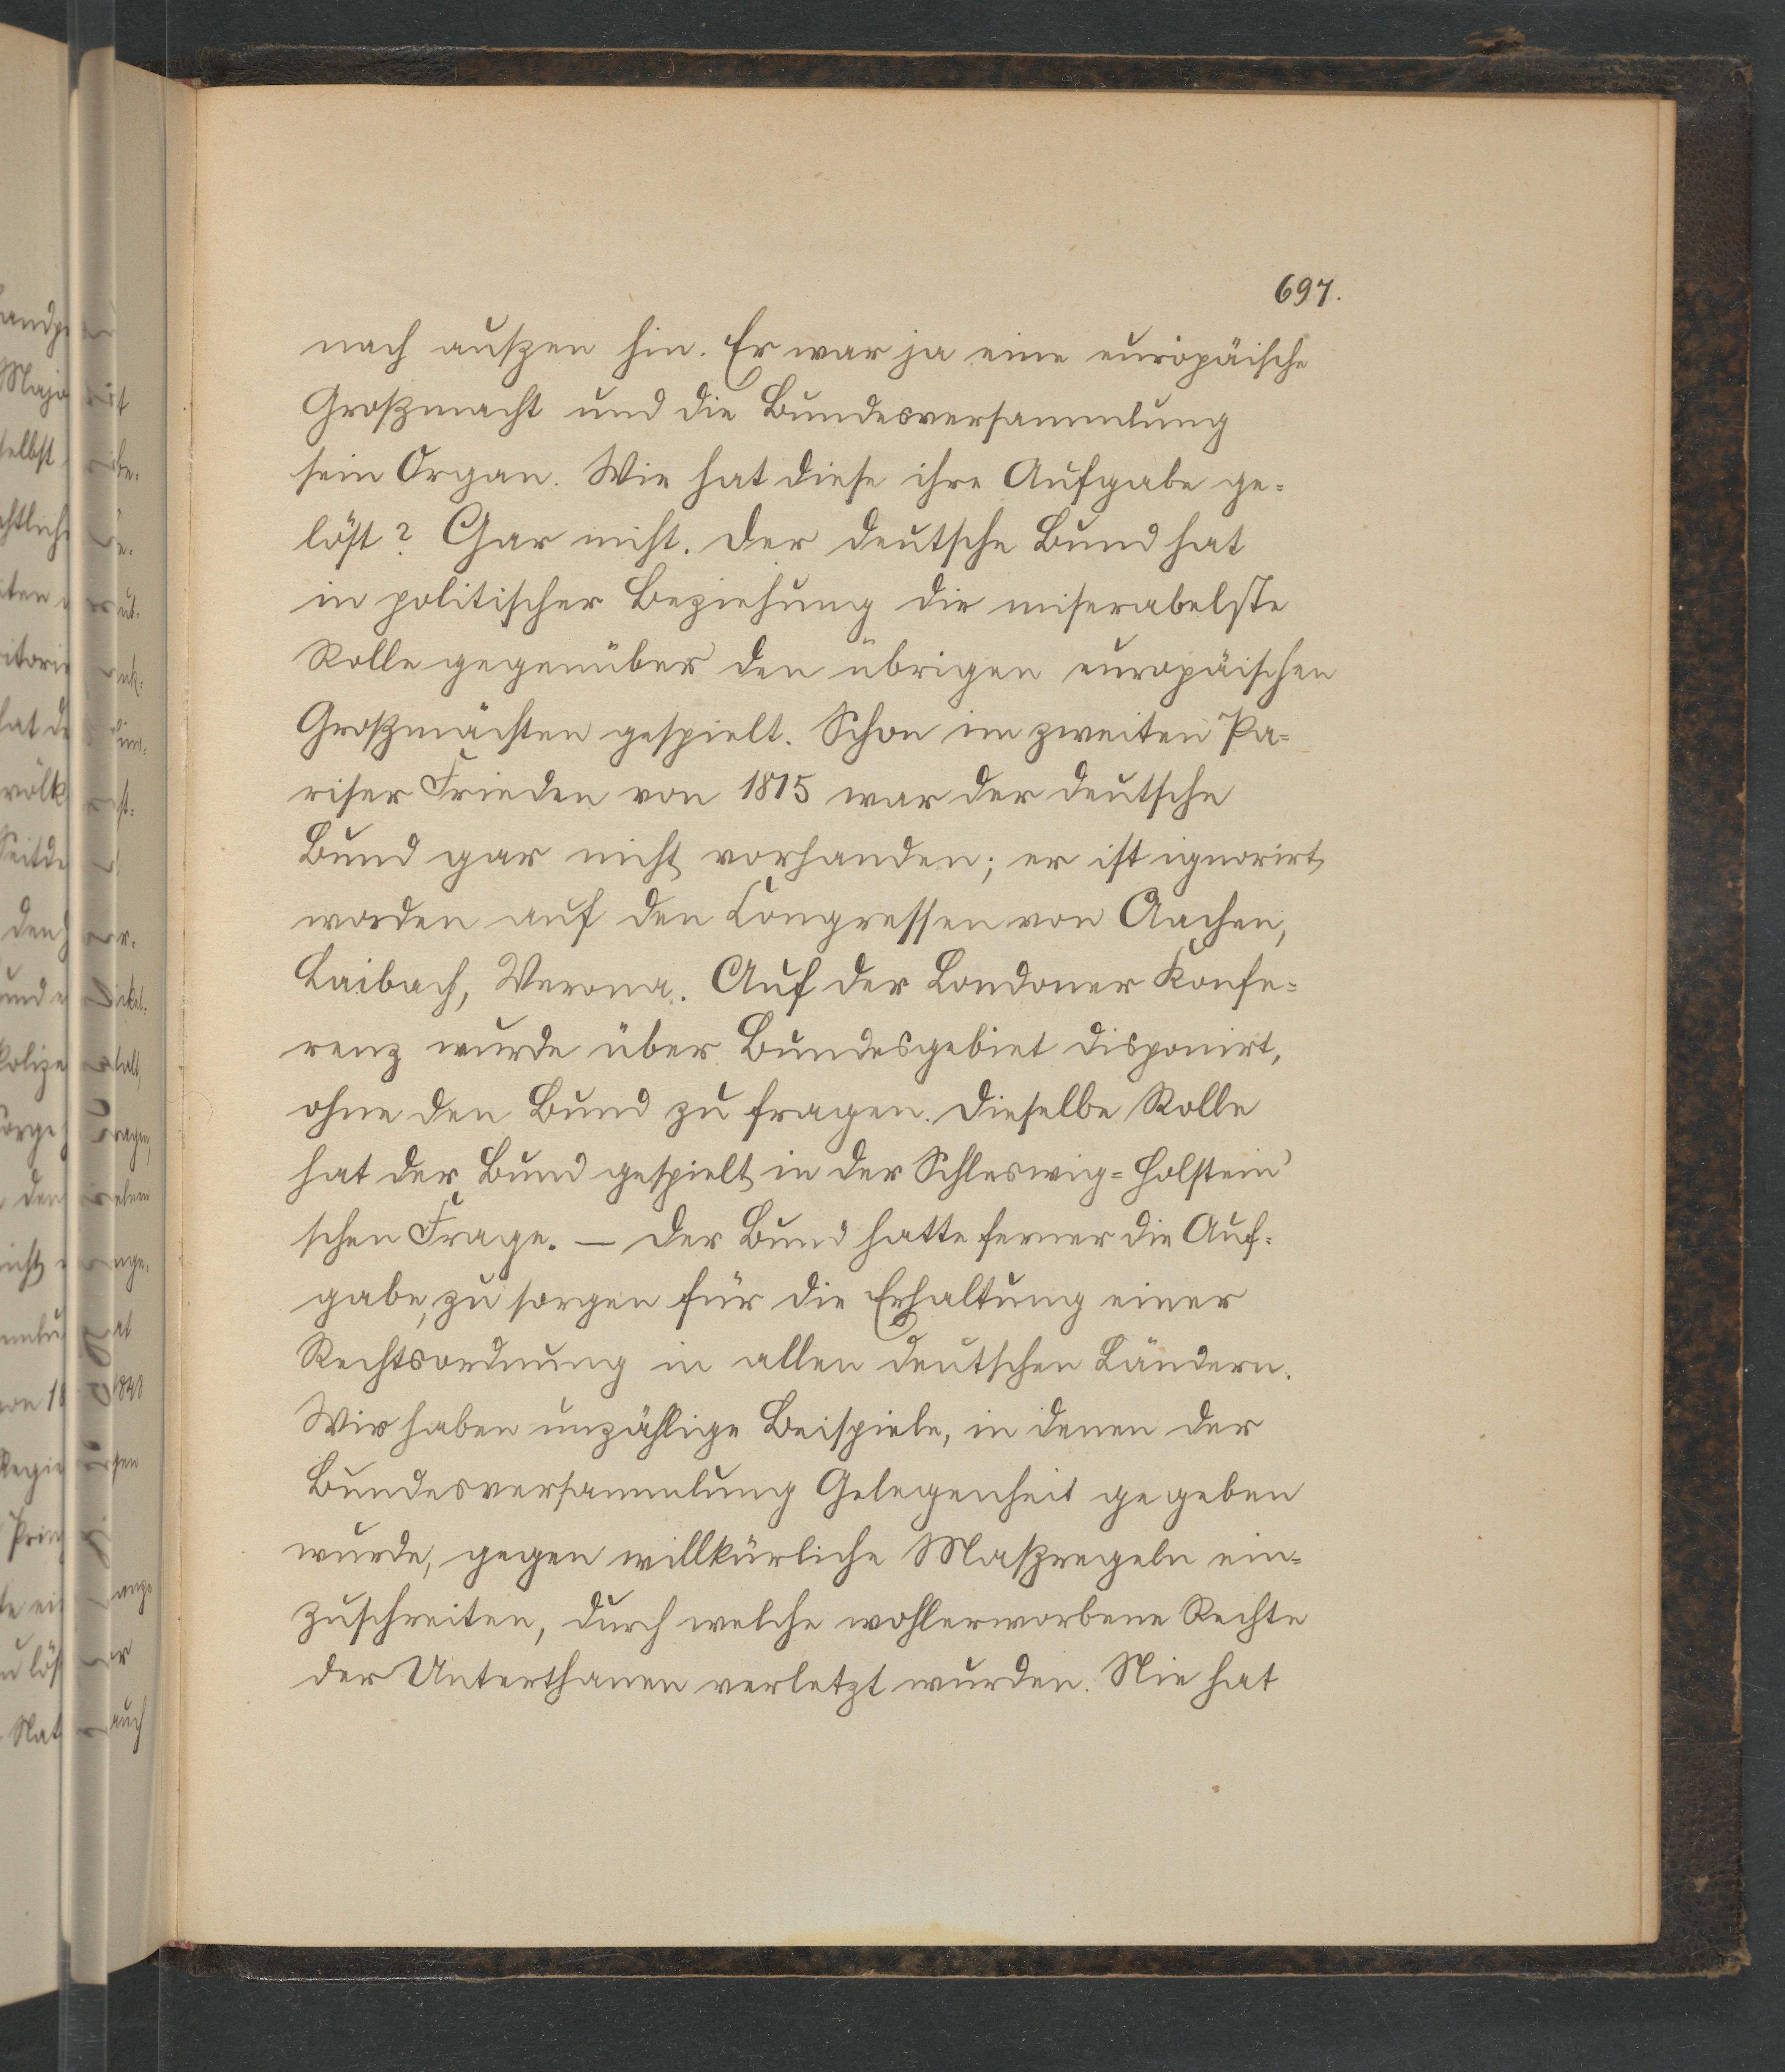 697.
nach außen hin. Er war ja eine europäische
Großmacht und die Bundesversammlung
sein Organ. Wie hat diese ihre Aufgabe ge-
löst? Gar nicht. Der deutsche Bund hat
in politischer Beziehung die miserabelste
Rolle gegenüber den übrigen europäischen
Großmächten gespielt. Schon im zweiten Pa-
riser Frieden von 1815 war der deutsche
Bund gar nicht vorhanden; er ist ignorirt
worden auf den Congressen von Aachen,
Laibach, Verona. Auf der Londoner Konfe-
renz wurde über Bundesgebiet disponirt,
ohne den Bund zu fragen. Dieselbe Rolle
hat der Bund gespielt in der Schleswig-Holstein'
schen Frage. — Der Bund hatte ferner die Auf-
gabe, zu sorgen für die Erhaltung einer
Rechtsordnung in allen deutschen Ländern.
Wir haben unzählige Beispiele, in denen der
Bundesversammlung Gelegenheit gegeben
wurde, gegen willkürliche Maßregeln ein-
zuschreiten, durch welche wohlerworbene Rechte
der Unterthanen verletzt wurden. Nie hat